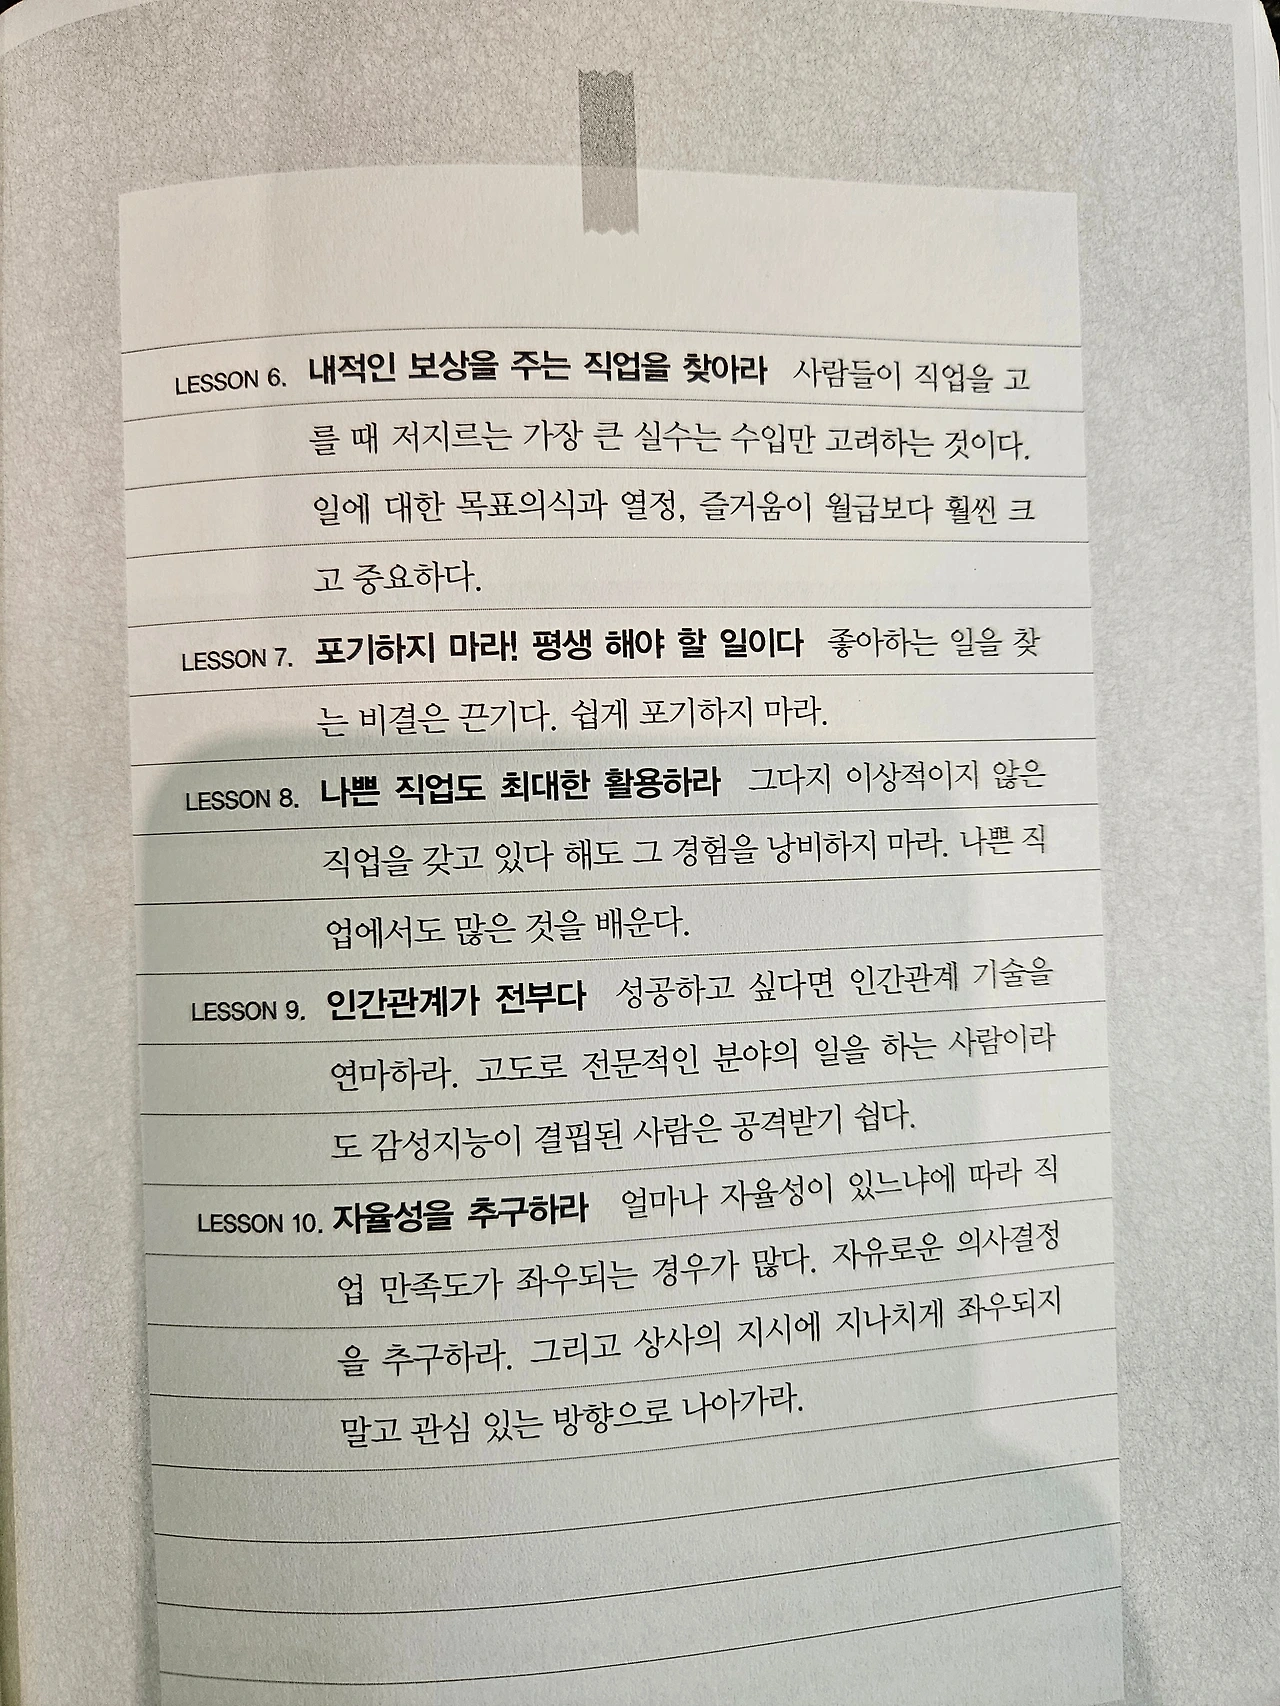 LESSON 6. 내적인 보상을 주는 직업을 찾아라 사람들이 직업을 고
를 때 저지르는 가장 큰 실수는 수입만 고려하는 것이다.
일에 대한 목표의식과 열정, 즐거움이 월급보다 훨씬 크
고 중요하다.
LESSON 7. 포기하지 마라! 평생 해야 할 일이다 좋아하는 일을 찾
는 비결은 끈기다. 쉽게 포기하지 마라.
LESSON 8. 나쁜 직업도 최대한 활용하라 그다지 이상적이지 않은
직업을 갖고 있다 해도 그 경험을 낭비하지 마라. 나쁜 직
업에서도 많은 것을 배운다.
LESSON 9. 인간관계가 전부다 성공하고 싶다면 인간관계 기술을
연마하라. 고도로 전문적인 분야의 일을 하는 사람이라
도 감성지능이 결핍된 사람은 공격받기 쉽다.
LESSON 10. 자율성을 추구하라 얼마나 자율성이 있느냐에 따라 직
업 만족도가 좌우되는 경우가 많다. 자유로운 의사결정
을 추구하라. 그리고 상사의 지시에 지나치게 좌우되지
말고 관심 있는 방향으로 나아가라.